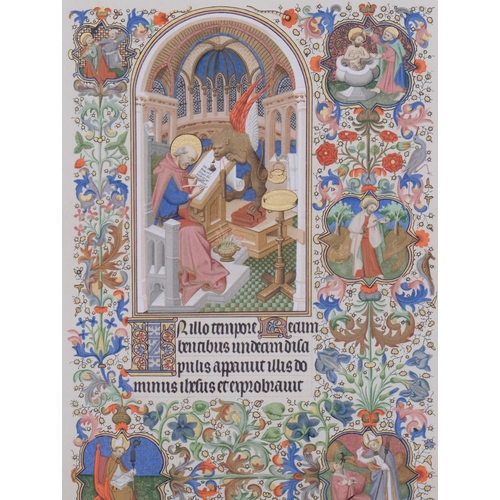 IN illo tempore Recum
bentibus undecim disci
pulis apparuit illis do
minus ihesus et exprobrauit